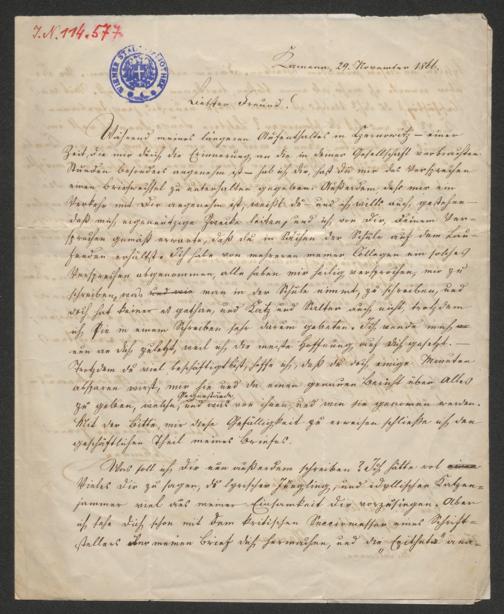 J.N. 114.577
WIENER STADTBIBLIOTHEK
Zamena, 29. November 1866.
Liebster Freund!
Während meines längeren Aufenthaltes in Czernowitz – einer
Zeit, die mir durch die Erinnerung an die in deiner Gesellschaft verbrachten
Stunden besonders angenehm ist – hab ich dir, hast du mir das Versprechen
einen Briefwechsel zu unterhalten gegeben. Außerdem, daß mir ein
Verkehr mit Dir angenehm ist, weißt du – und ich will's auch gestehen –
daß mich eigennützige Zwecke leiten, und ich vor Dir, Deinem Ver-
sprechen gemäß erwarte, daß du in Sachen der Schule auf dem Lau-
fenden erhältst. Ich habe von mehreren meiner Collegen ein solches
Versprechen abgenommen, alle haben mir heilig versprochen, mir zu
schreiben, was man in der Schule nimmt, zu schreiben, und
doch hat keiner es gethan, und Katz und Salter auch nicht, trotzdem
ich sie in einem Schreiben sehr darum gebeten. Ich wende mich
nun an dich zuletzt, weil ich die meiste Hoffnung auf dich gesetzt. –
Trotzdem du viel beschäftigt bist, hoffe ich, daß du doch einige Minuten
absparen wirst, mir hie und da einen genauen Bericht über Alles
zu geben, welche Gegenstände, und was vor ihnen, und wie sie genommen werden.
Mit der Bitte, mir diese Gefälligkeit zu erweisen schließe ich den
geschäftlichen Theil meines Briefes.
Was soll ich dir nun außerdem schreiben? Ich hätte wol
Vieles Dir zu sagen, als lyrischer Jüngling, und idyllischen Katzen-
jammer viel aus meiner Einsamkeit dir vorzusingen. Aber
ich sehe Dich schon mit dem kritischen Seccirmesser eines Schrift-
stellers über meinen Brief dich hermachen, und die „Epitheta" ana-